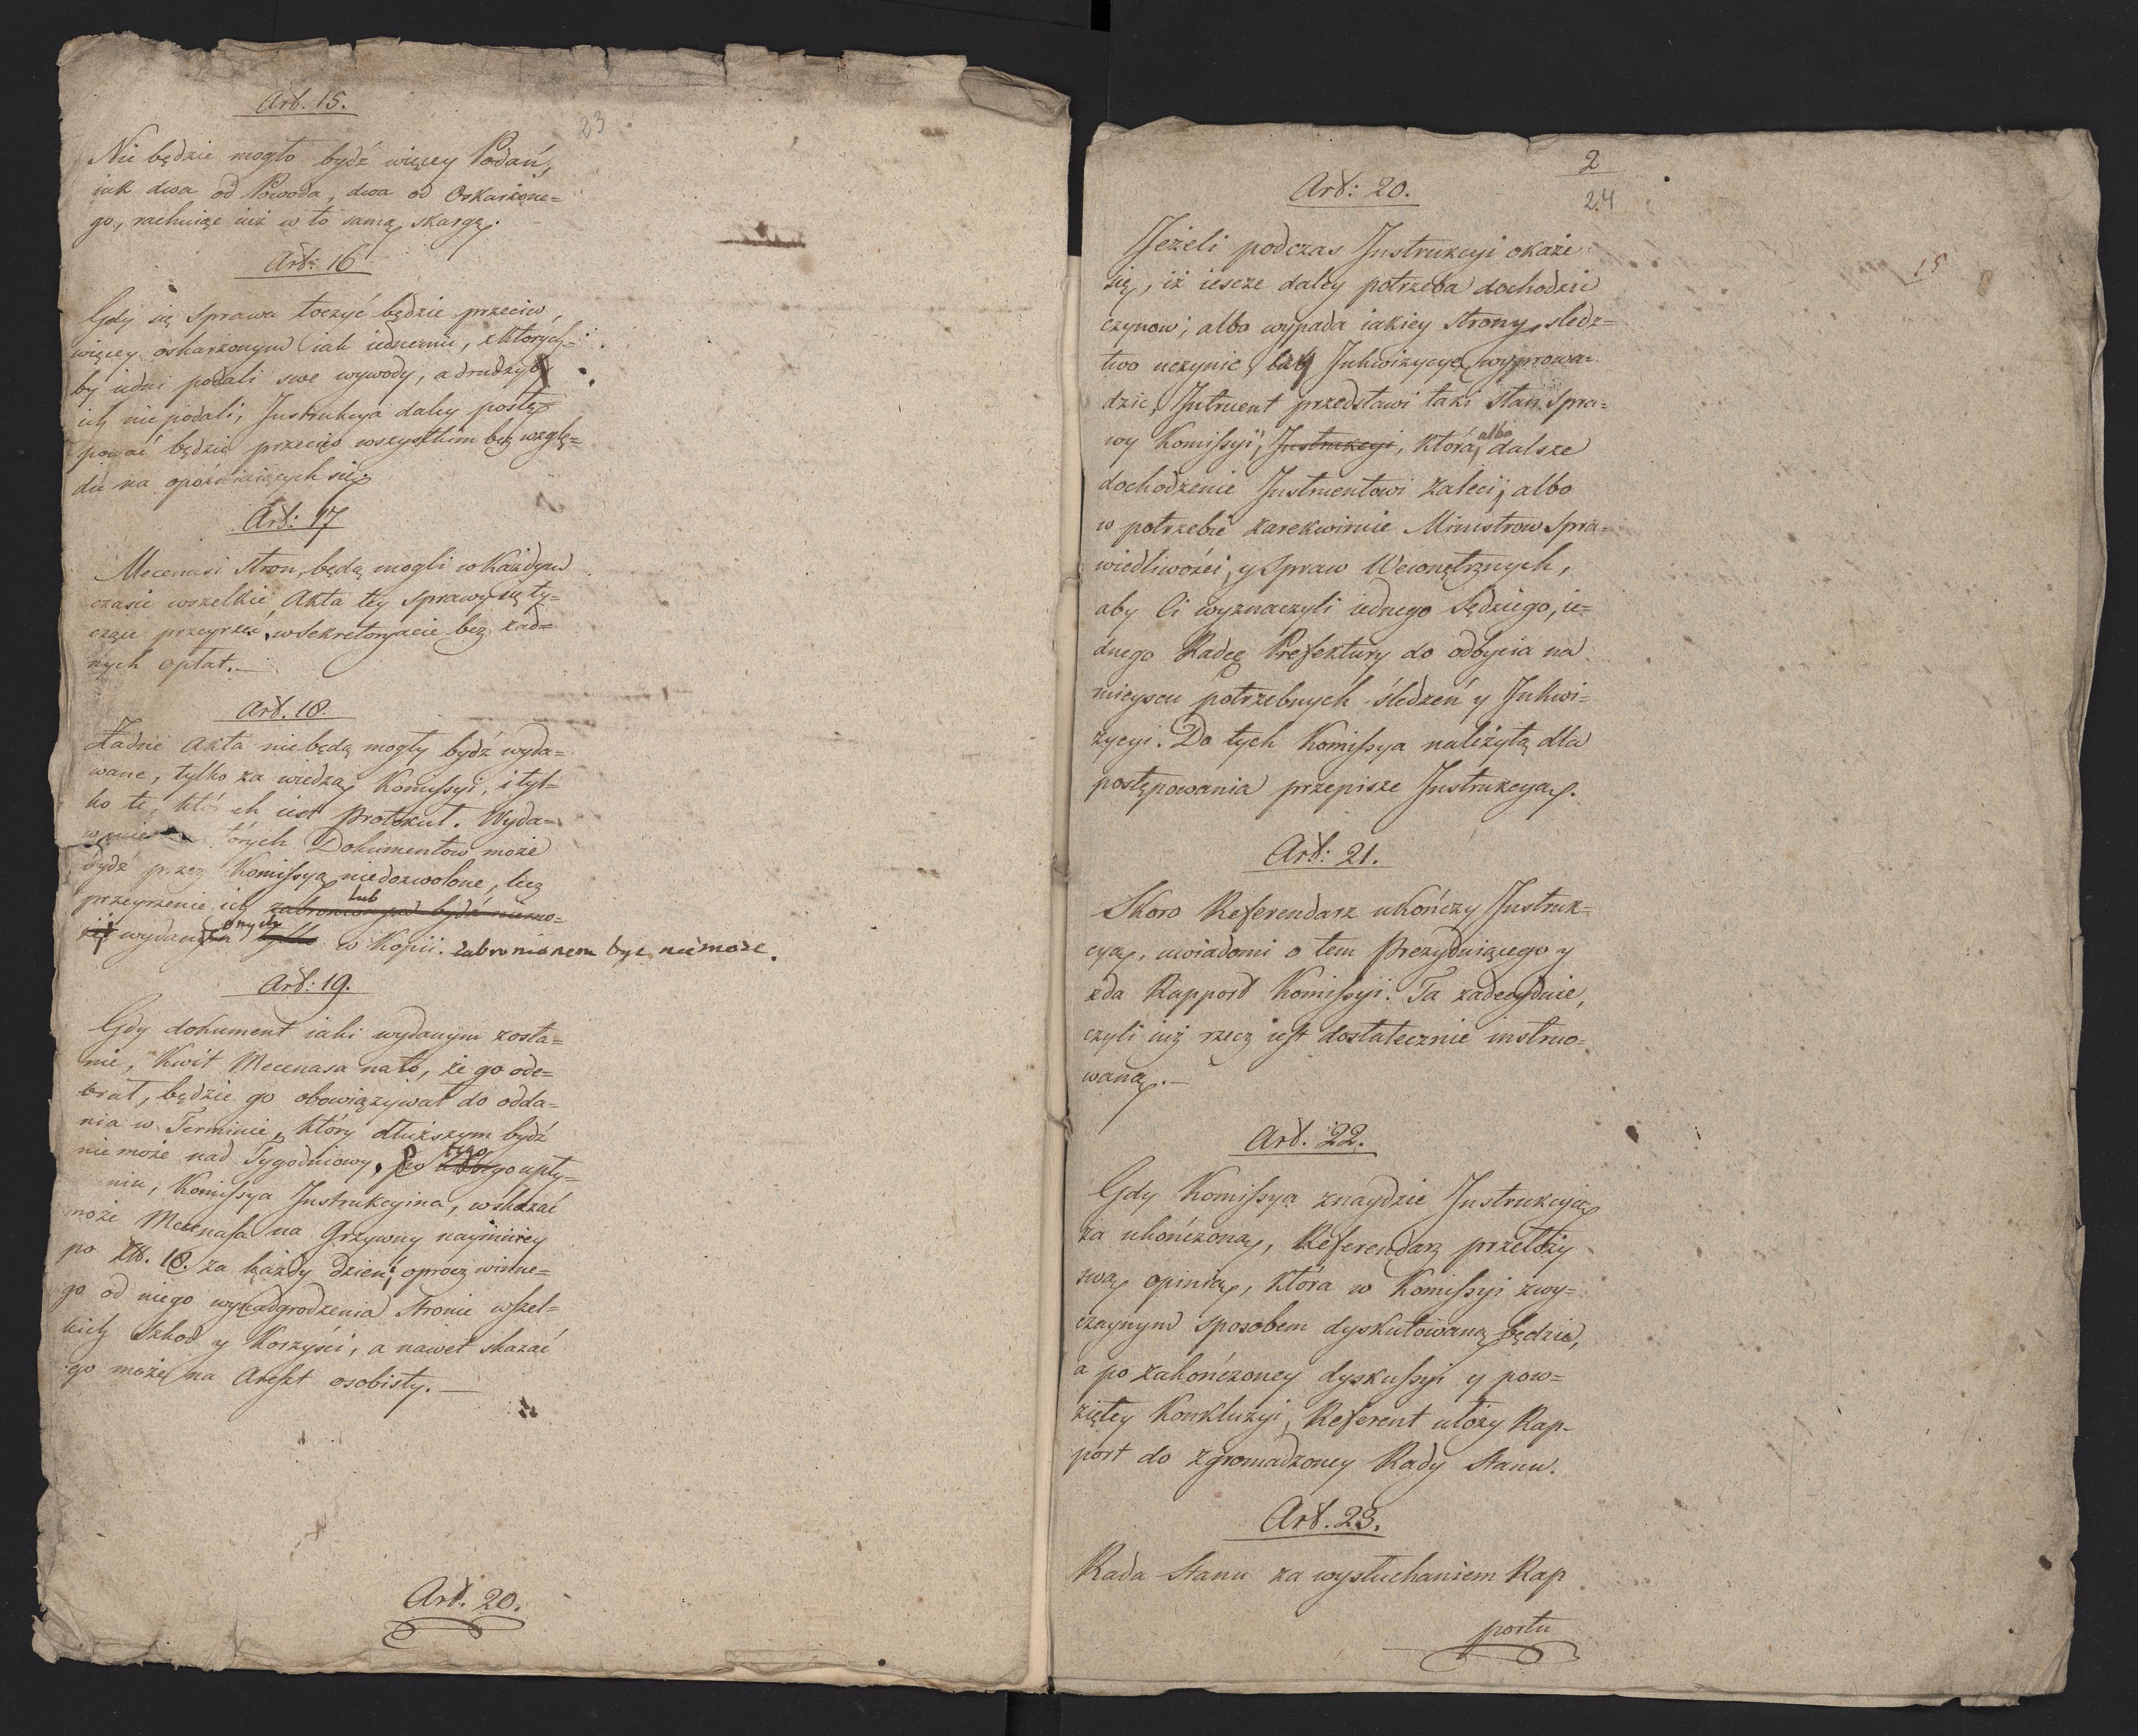 Art. 15.
23
Nie będzie mogło bydź więcey Podań,
iak dwa od Powoda, dwa od Oskarżone=
go, rachuiąc iuż w to samą skargę.
Art: 16
Gdy się sprawa toczyć będzie przeciw,
więcey oskarżonym iak iednemu, z których=
by iedni podali swe wywody, a drudzy
ich nie podali, Instrukcya daley postę=
pować będzie przeciw wszystkim bez wzglę=
du na opóźniaiących się.
Art: 17
Mecenasi stron, będą mogli w każdym
czasie wszelkie Akta tey sprawy się ty=
czące przeyrzeć w Sekretaryacie bez żad=
nych opłat.—
Art. 18.
Żadne Akta nie będą mogły bydź wyda=
wane, tylko za wiedzą Komissyi, i tyl=
ko te, któ ch iest Protokuł. Wyda=
tórych Dokumentow może
bydź przez Komissyą niedozwolone, lecz
przeyrzenie ich zabronionym bydź niemo=
lub
że wydanie onych tylko w Kopii. zabronionem byc niemoże.
Art: 19.
Gdy dokument iaki wydanym zosta=
nie, Kwit Mecenasa na to, że go ode=
brał, będzie go obowiązywał do odda=
nia w Terminie, który dłuższym bydź
nie może nad Tygodniowy. Po tego upły=
niu, Komissya Instrukcyina, wskazać
może Mecenasa na Grzywny naymniey
po Zł. 18. za każdy dzień; oprocz winne=
go od niego wynadgrodzenia stronie wszel=
kich szkod y Korzyści, a nawet skazać
go może na Areszt osobisty.—
Art. 20.
2
24
Art: 20.
Jeżeli podczas Instrukcyi okaże
się, iż iescze daley potrzeba dochodzić
czynow, albo wypada iakiey strony sledz=
two uczynić, Inkwizycyę wyprowa=
dzić, Intruent przedstawi taki stan spra=
wy Komissyi, Instrukcyi, która albo dalsze
dochodzenie Instruentowi zaleci, albo
w potrzebie zarekwiruie Ministrow Spra=
wiedliwości, y Spraw Wewnętrznych,
aby Ci wyznaczyli iednego Sędziego, ie=
dnego Radcę Prefektury do odbycia na
mieyscu potrzebnych śledzeń y Inkwi=
zycyi. Do tych Komissya należytą dla
postępowania przepisze Instrukcyą.
Art: 21.
Skoro Referendarz ukończy Instruk=
cyą, uwiadomi o tem Prezyduiącego y
zda Rapport Komissyi. Ta zadecyduie,
czyli iuż rzecz iest dostatecznie instruo=
waną.—
Art. 22.
Gdy Komissya znaydzie Instrukcyią
za ukończoną, Referendarz przełoży
swą opinią, która w Komissyi zwy=
czaynym sposobem dyskutowaną będzie,
a po zakończoney dyskussyi y pow=
ziętey Konkluzyi, Referent ułoży Rap=
port do zgromadzoney Rady Stanu.
Art. 23.
Rada Stanu za wysłuchaniem Rap
portu
15